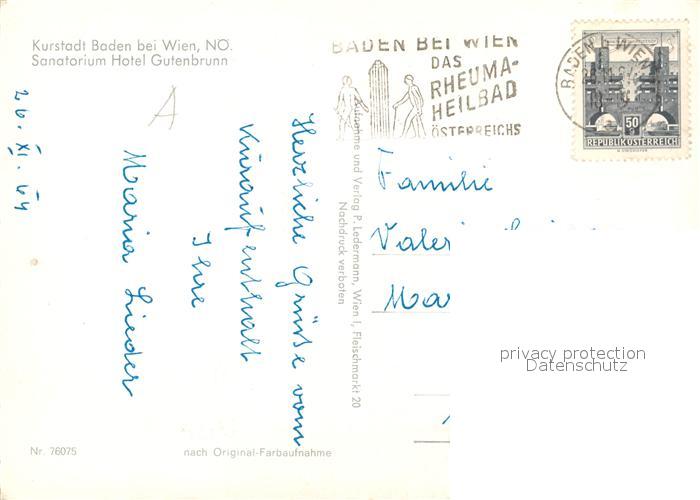 Kurstadt Baden bei Wien, NÖ.
Sanatorium Hotel Gutenbrunn
26. XI. 64
A
Herzliche Grüße vom
Kuraufenthalt
Ihre
Maria Lieder
Aufnahme und Verlag P. Ledermann, Wien I, Fleischmarkt 20
Nachdruck verboten
BADEN BEI WIEN
DAS
RHEUMA-
HEILBAD
ÖSTERREICHS
BADEN b. WIEN
50
REPUBLIK ÖSTERREICH
Familie
privacy protection
Datenschutz
Nr. 76075
nach Original-Farbaufnahme